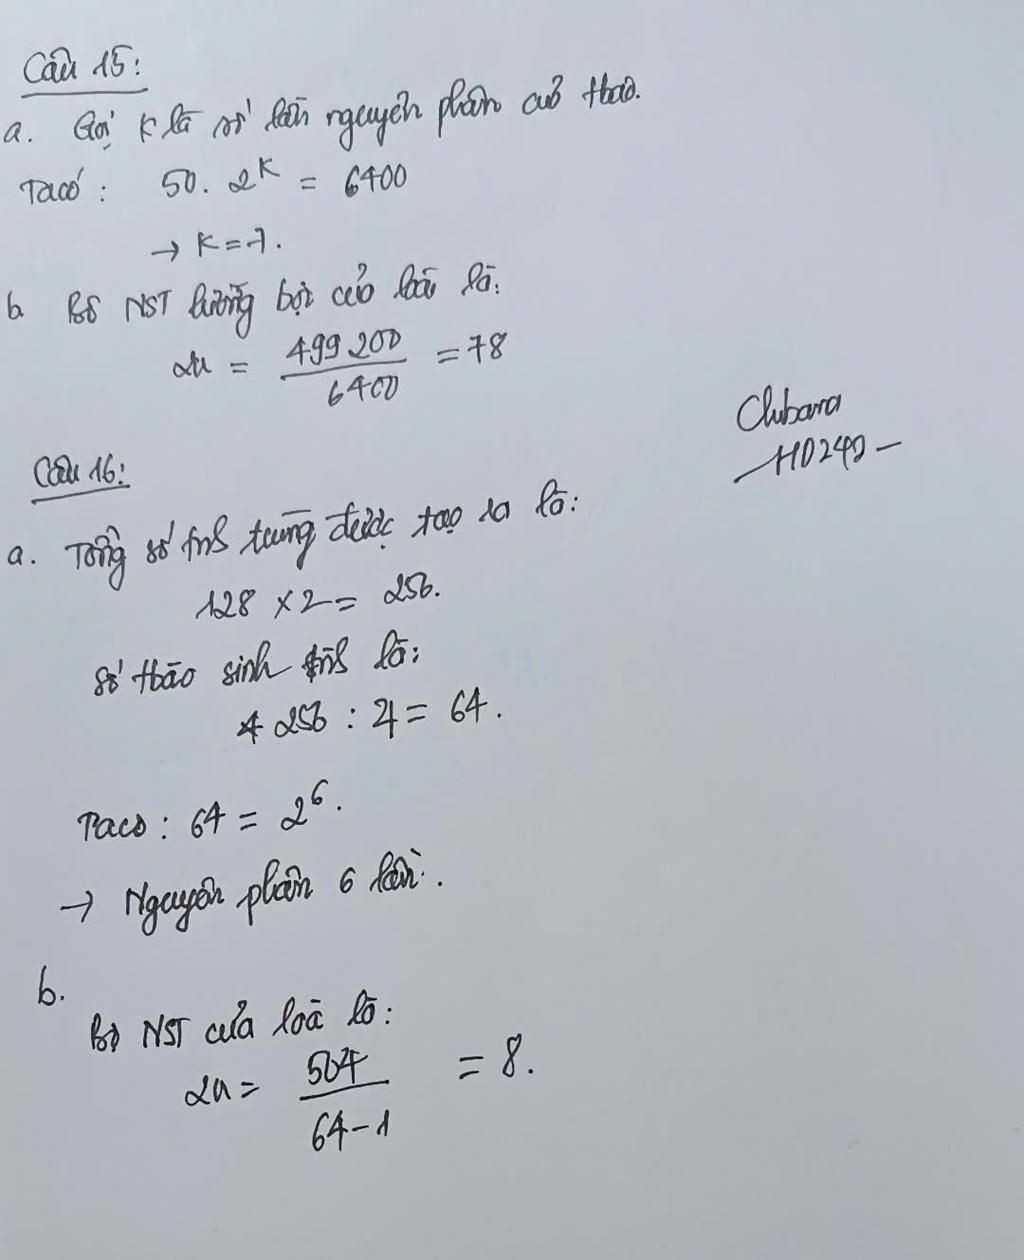 Câu 15:
a. Gọi K là số lần nguyên phân của thao.
Ta có: 50. 2^K = 6400
→ K = 7.
b. Bộ NST lưỡng bội của loài là:
2n = 499 200 / 6400 = 78
Chibara
HD242 -
Câu 16:
a. Tổng số tinh trùng được tạo ra là:
128 × 2 = 256.
Số tbào sinh tinh là:
256 : 4 = 64.
Ta có: 64 = 2^6.
→ Nguyên phân 6 lần.
b.
Bộ NST của loà là:
2n = 504 / 64 - 1 = 8.